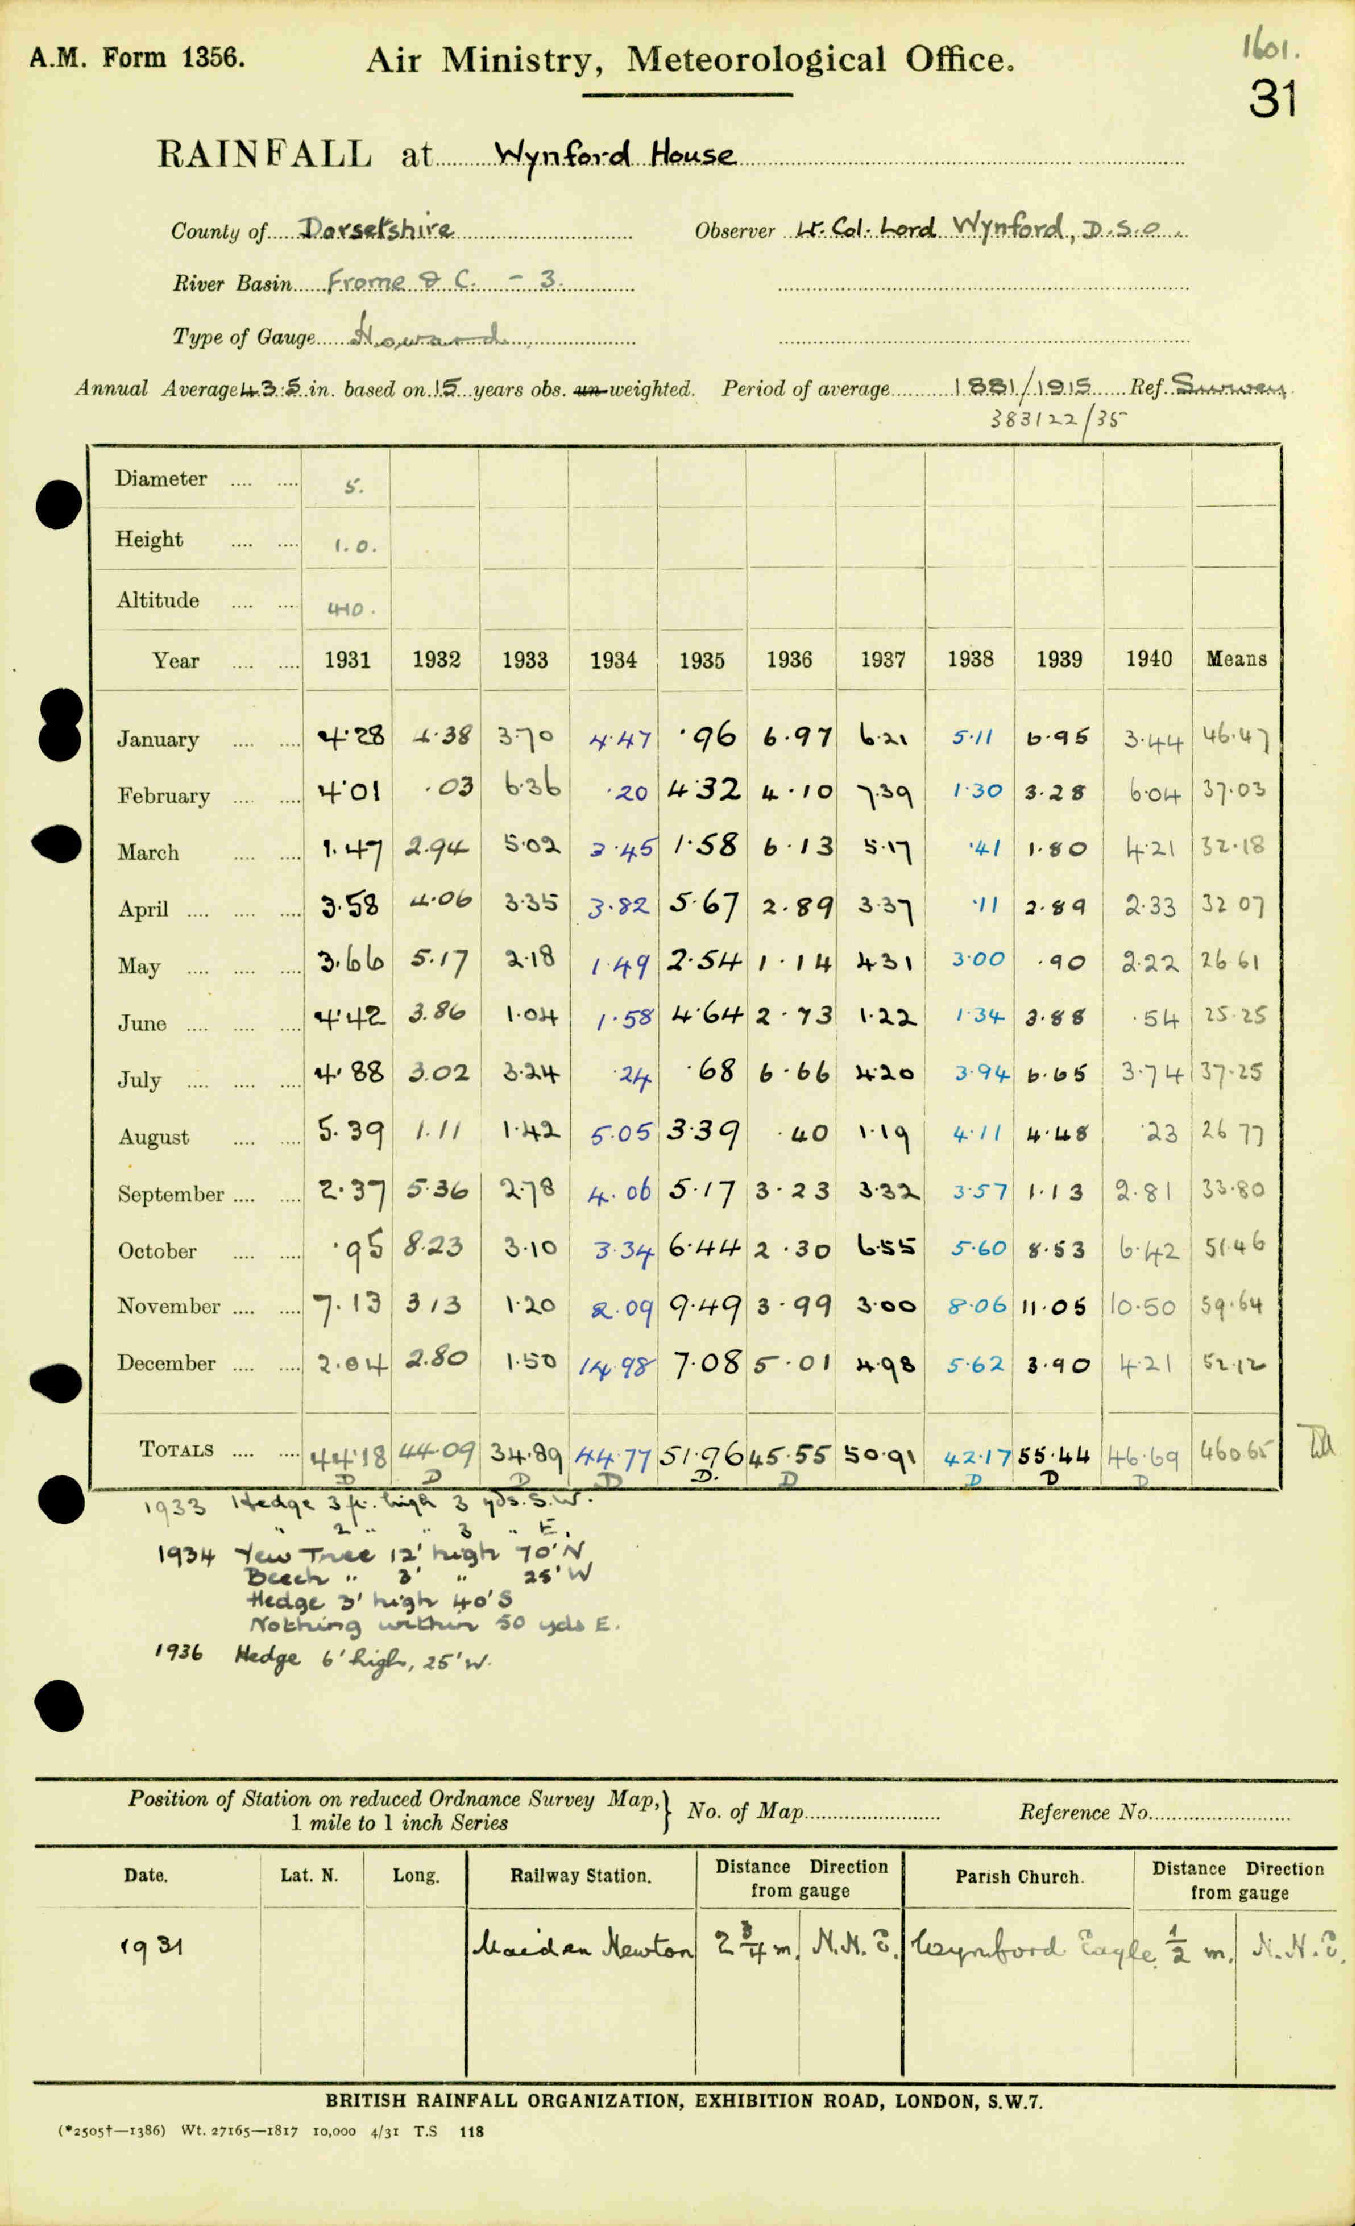 1601.
A.M. Form 1356. Air Ministry, Meteorological Office.
31
RAINFALL at Wynford House
County of Dorsetshire Observer Lt. Col. Lord Wynford, D.S.O.
River Basin Frome & C. - 3.
Type of Gauge Howard
Annual Average 43.5 in. based on 15 years obs. un-weighted. Period of average 1881/1915 Ref. Survey
383122/35
Diameter .... .... 5.
Height .... .... 1.0.
Altitude .... .... 410.
Year .... .... 1931 1932 1933 1934 1935 1936 1937 1938 1939 1940 Means
January .... .... 4.28 4.38 3.70 4.47 .96 6.97 6.21 5.11 6.95 3.44 46.47
February .... .... 4.01 .03 6.36 .20 4.32 4.10 7.39 1.30 3.28 6.04 37.03
March .... .... 1.47 2.94 5.02 3.45 1.58 6.13 5.17 .41 1.80 4.21 32.18
April .... .... .... 3.58 4.06 3.35 3.82 5.67 2.89 3.37 .11 2.89 2.33 32 07
May .... .... .... 3.66 5.17 2.18 1.49 2.54 1.14 4.31 3.00 .90 2.22 26 61
June .... .... .... 4.42 3.86 1.04 1.58 4.64 2.73 1.22 1.34 3.88 .54 25.25
July .... .... .... 4.88 3.02 3.24 .24 .68 6.66 4.20 3.94 6.65 3.74 37.25
August .... .... 5.39 1.11 1.42 5.05 3.39 .40 1.19 4.11 4.48 .23 26 77
September .... .... 2.37 5.36 2.78 4.06 5.17 3.23 3.32 3.57 1.13 2.81 33.80
October .... .... .95 8.23 3.10 3.34 6.44 2.30 6.55 5.60 8.53 6.42 51.46
November .... .... 7.13 3.13 1.20 2.09 9.49 3.99 3.00 8.06 11.05 10.50 59.64
December .... .... 2.04 2.80 1.50 14.98 7.08 5.01 4.98 5.62 3.90 4.21 52.12
TOTALS .... .... 44.18 44.09 34.89 44.77 51.96 45.55 50.91 42.17 55.44 46.69 460 65
D D D D D. D D D D
1933 Hedge 3 ft. high 3 yds. S.W.
" 2 " " 3 " E.
1934 Yew Tree 12' high 70' N
Beech " 3' " 25' W
Hedge 3' high 40' S
Nothing within 50 yds E.
1936 Hedge 6' high, 25' W.
Position of Station on reduced Ordnance Survey Map, } No. of Map Reference No.
1 mile to 1 inch Series
Date. Lat. N. Long. Railway Station. Distance Direction from gauge Parish Church. Distance Direction from gauge
1931 Maiden Newton 2 3/4 m. N.N.E. Wynford Eagle 1/2 m. N.N.E.
BRITISH RAINFALL ORGANIZATION, EXHIBITION ROAD, LONDON, S.W.7.
(*2505†—1386) Wt. 27165—1817 10,000 4/31 T.S 118